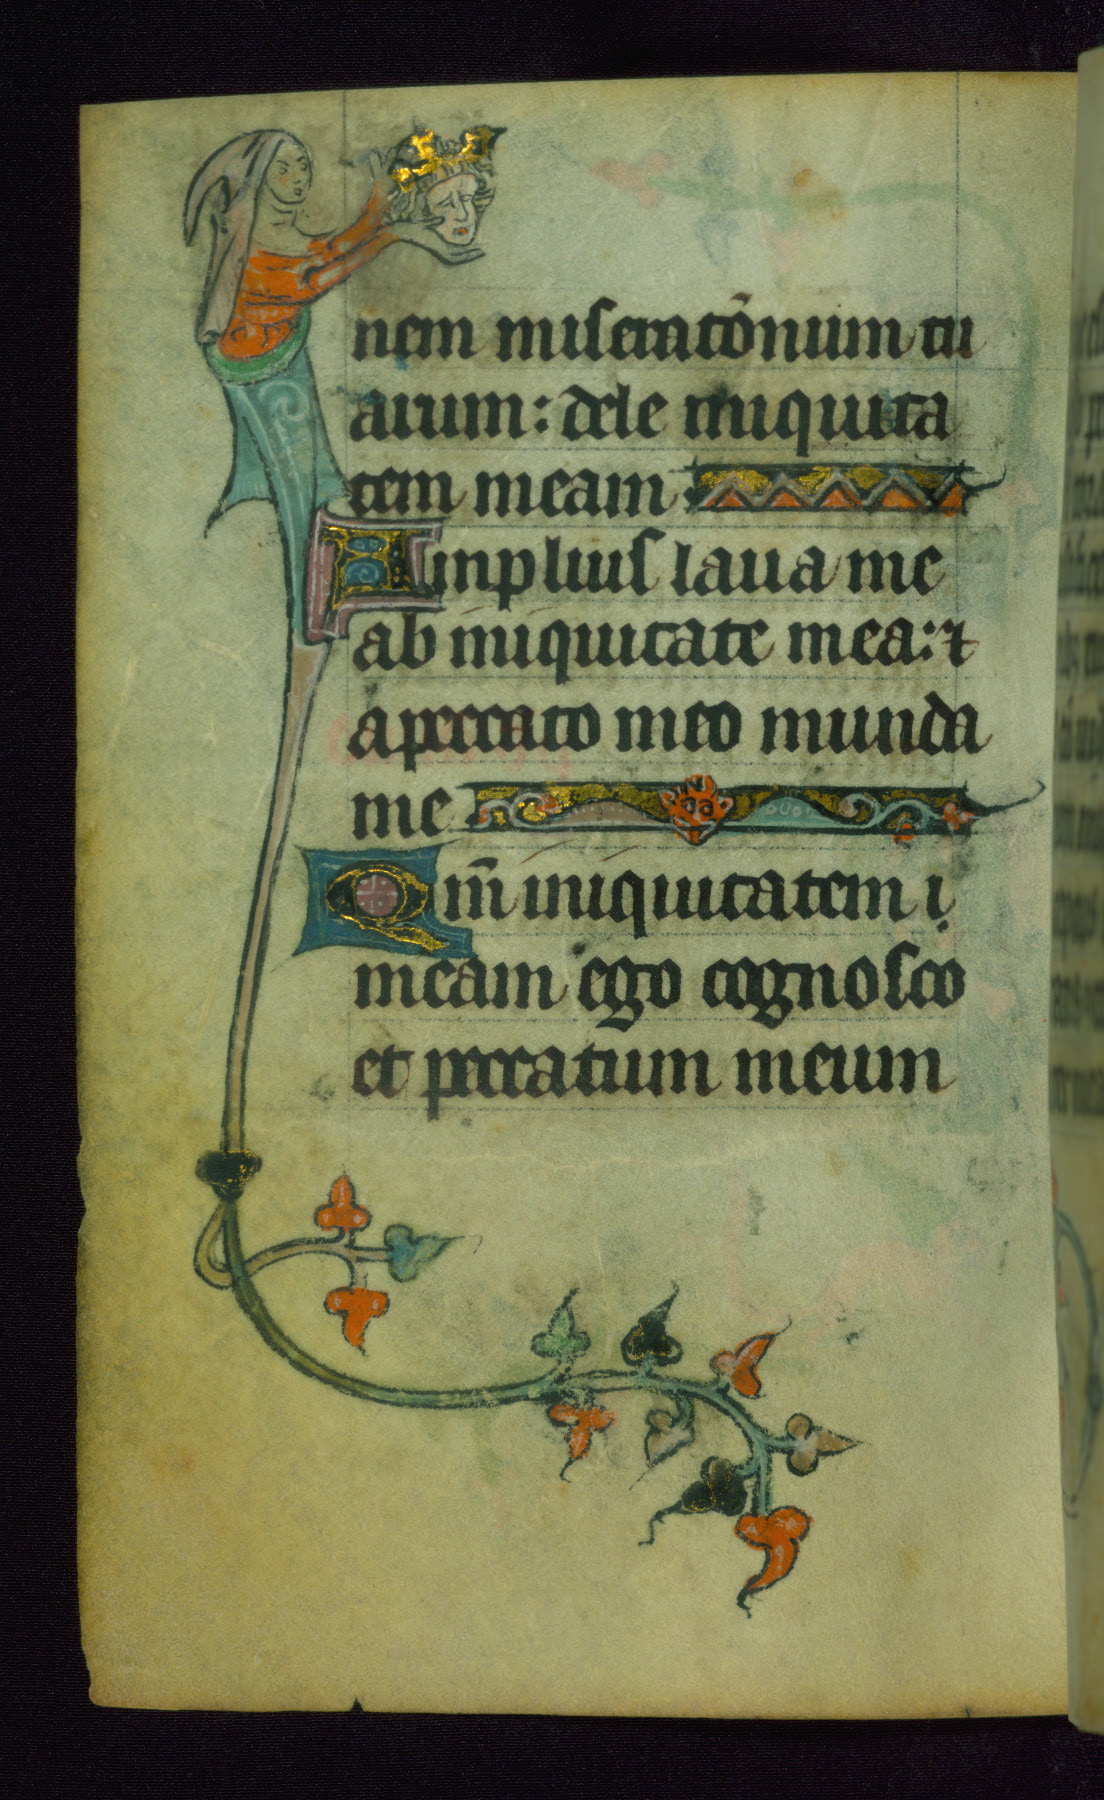 nem miseratōnium tu
arum: dele iniquita
tem meam
Amplius laua me
ab iniquitate mea: ⁊
a peccato meo munda
me
Qm̄ iniquitatem i
meam ego cognosco
et peccatum meum